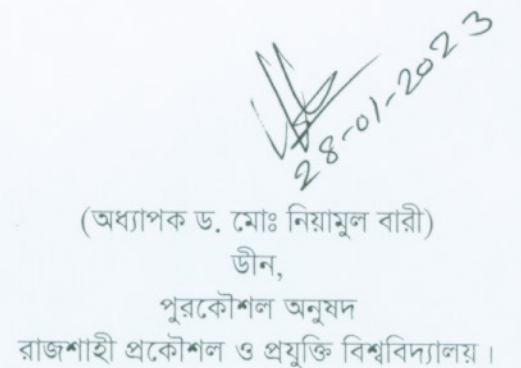 28-01-2023
(অধ্যাপক ড. মোঃ নিয়ামুল বারী)
ডীন,
পুরকৌশল অনুষদ
রাজশাহী প্রকৌশল ও প্রযুক্তি বিশ্ববিদ্যালয়।